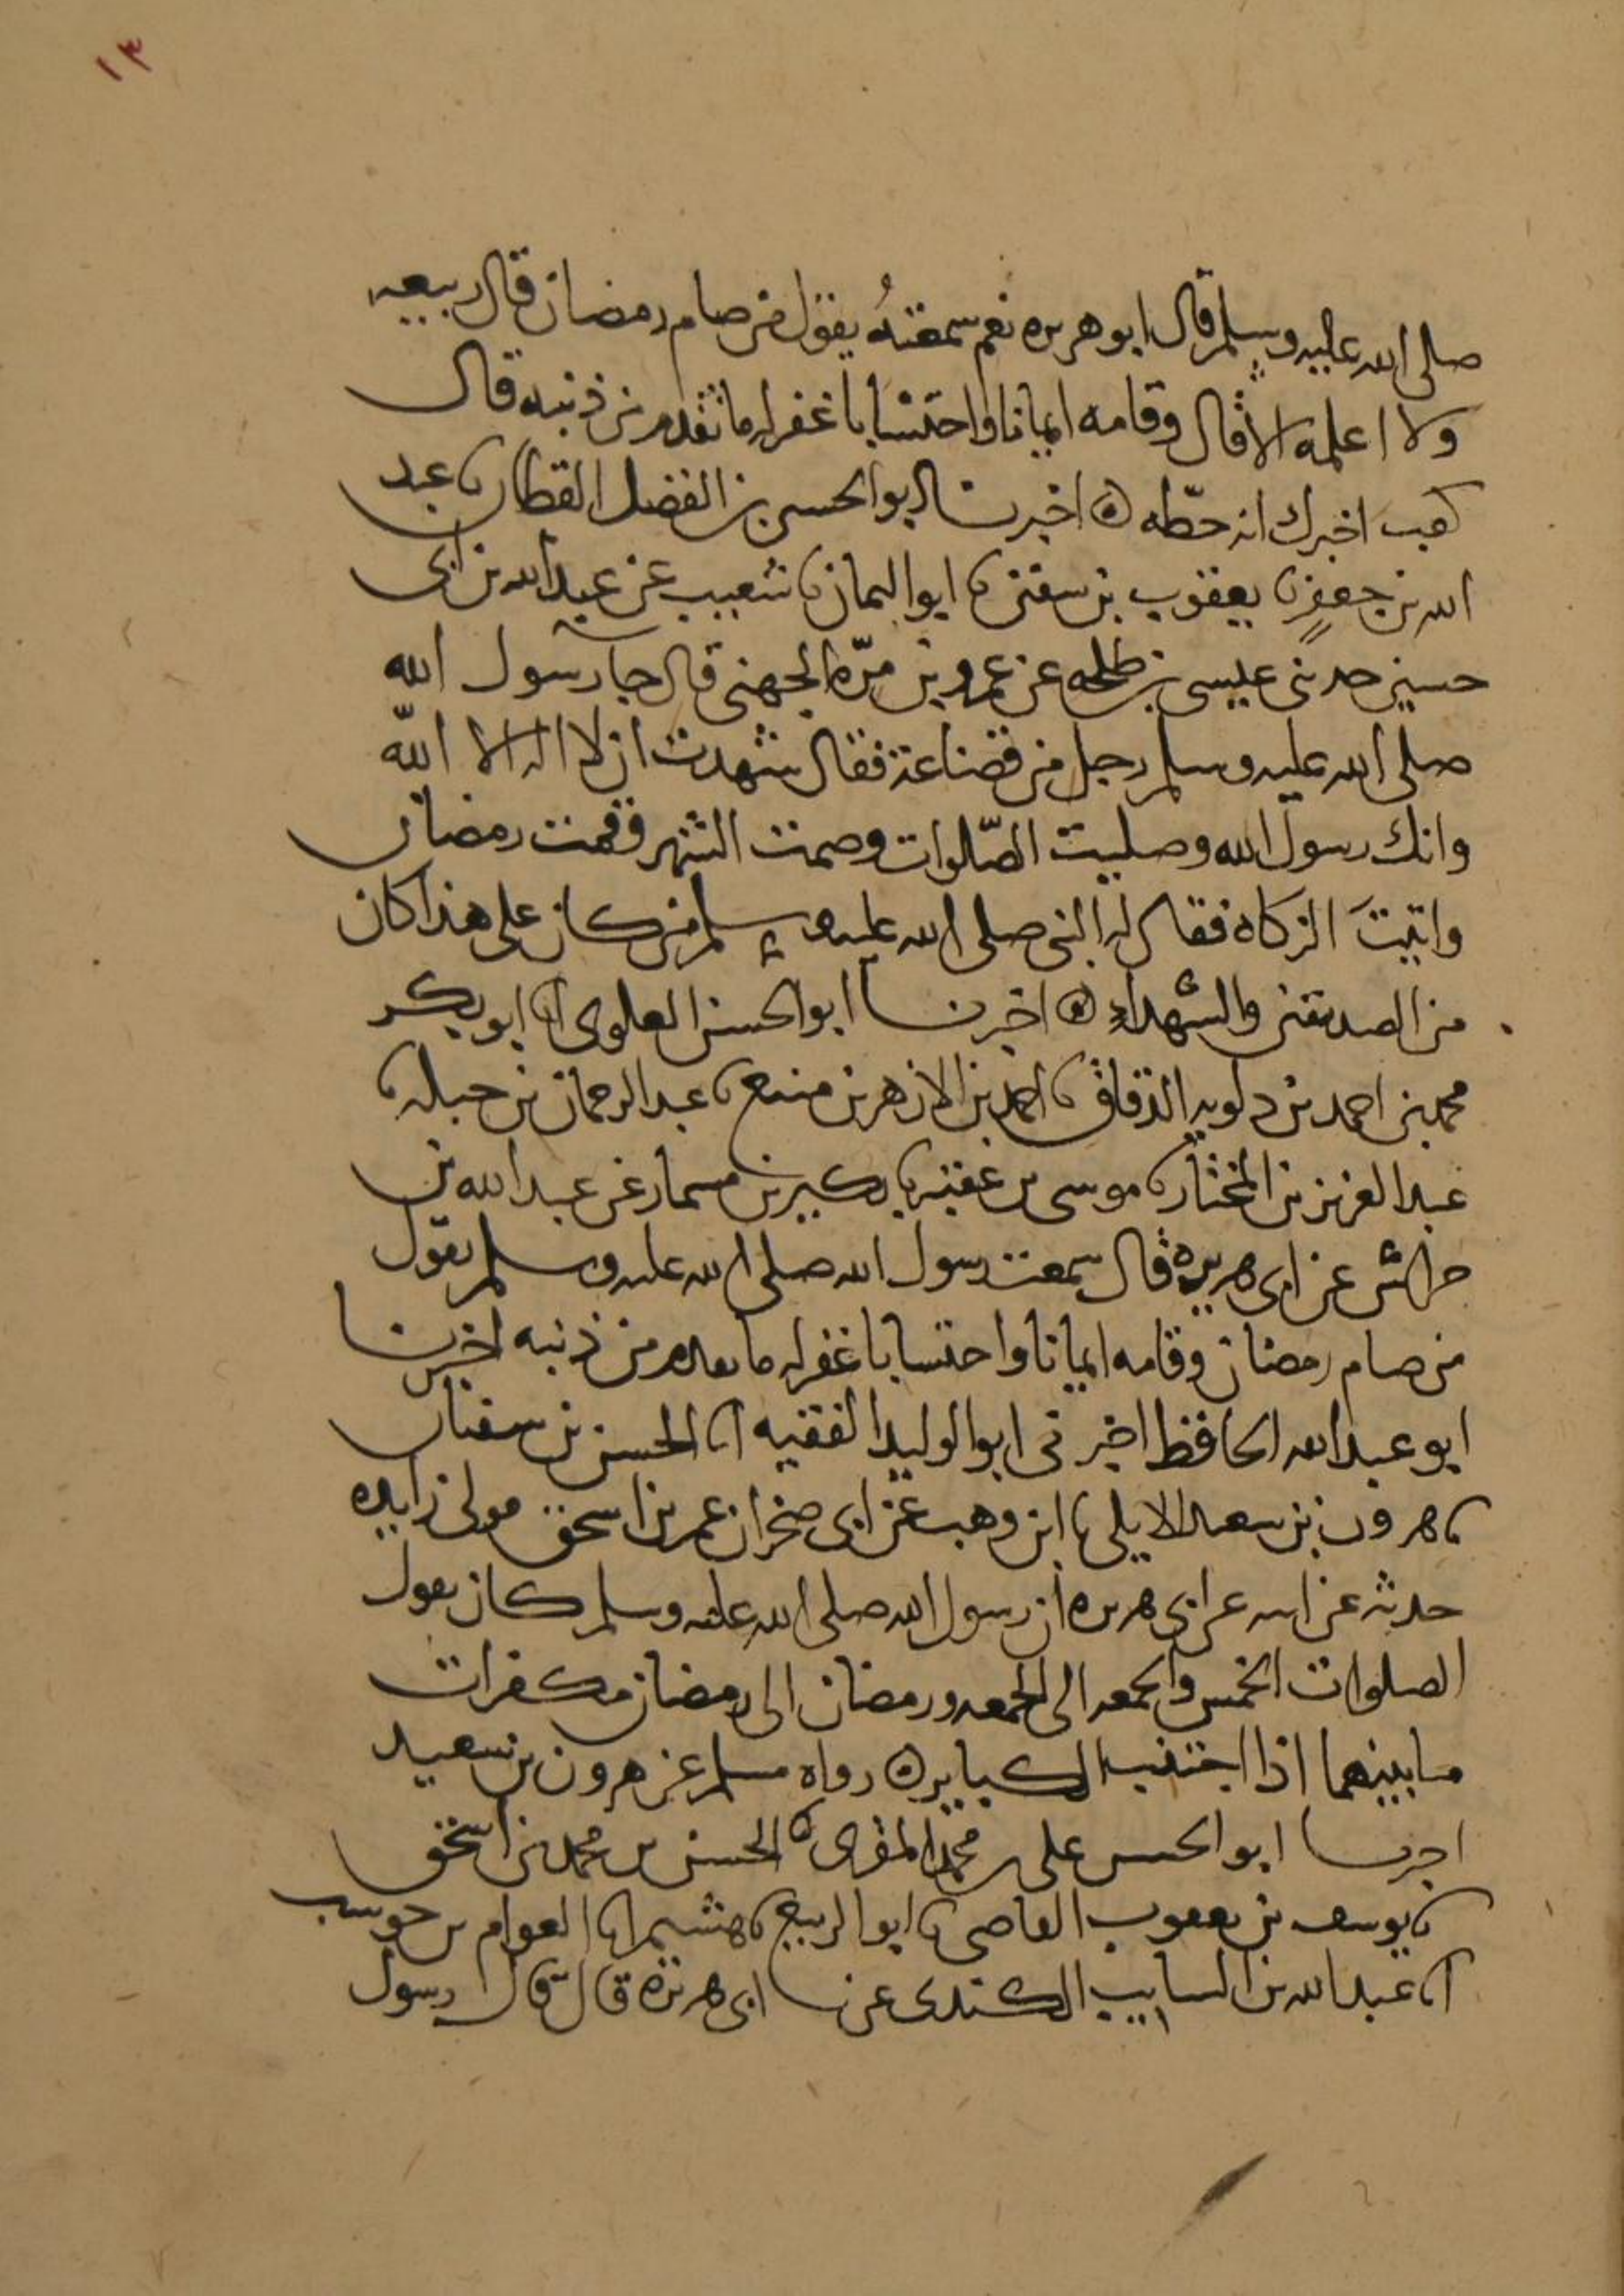 ١٣
صلى الله عليه وسلم قال ابو هريره نعم سمعتهُ يقول من صام رمضان قال ربيعه
ولا اعلمه الا قال وقامه ايمانا واحتسابا غفر له ما تقدم من ذنبه قال
كعب اخبرك انه حطّه اخبرنا ابو الحسين بن الفضل القطان نا عبد
الله بن جعفرٍ نا يعقوب بن سفين نا ابو اليمان نا شعيب عن عبد الله بن ابى
حسين حدثنى عيسى بن طلحه عن عمرو بن مرّه الجهنى قال جا رسول الله
صلى الله عليه وسلم رجل من قضاعة فقال شهدت ان لا اله الا الله
وانك رسول الله وصليت الصّلوات وصمت الشهر وقمت رمضان
واتيتَ الزكاة فقال له النبى صلى الله عليه وسلم من كان على هذا كان
من الصديقين والشهداءِ اخبرنا ابو الحسن العلوى انا ابو بكر
محمد بن احمد بن دلويه الدقاق نا احمد بن الازهر بن منيع نا عبد الرحمان بن جبله نا
عبد العزيز بن المختار نا موسى بن عقبه نا بكير بن مسمار عن عبد الله بن
خراش عن ابى هريرة قال سمعت رسول الله صلى الله عليه وسلم يقول
من صام رمضان وقامه ايمانا واحتسابا غفر له ما تقدم من ذنبه اخبرنا
ابو عبد الله الحافظ اخبرنى ابو الوليد الفقيه انا الحسن بن سفيان
نا هرون بن سعيد الايلى نا ابن وهب عن ابى صخر ان عمر بن اسحق مولى زايده
حدثه عن ابيه عن ابى هريره ان رسول الله صلى الله عليه وسلم كان يقول
الصلوات الخمس والجمعه الى الجمعه ورمضان الى رمضان مكفرات
ما بينهما اذا اجتنب الكباير رواه مسلم عن هرون بن سعيد
اخبرنا ابو الحسن على بن محمد المقرى انا الحسن بن محمد بن اسحق
نا يوسف بن يعقوب القاضى نا ابو الربيع نا هشيم انا العوام بن حوشب
انا عبد الله بن السايب الكندى عن ابى هريرة قال قال رسول